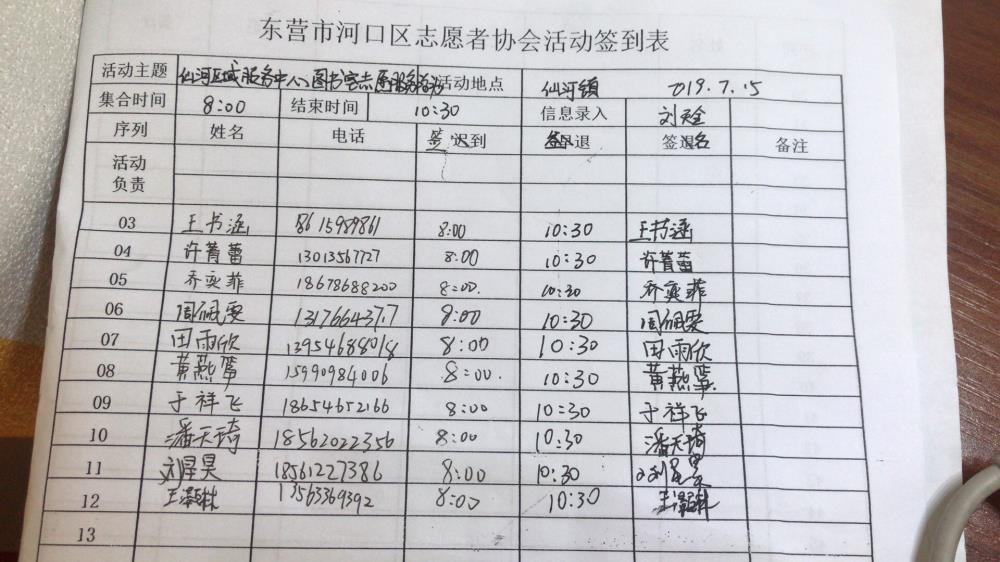 东营市河口区志愿者协会活动签到表
活动主题 仙河区域服务中心图书室志愿服务活动 活动地点 仙河镇 2019.7.15
集合时间 8:00 结束时间 10:30 信息录入
序列 姓名 电话 签到 签退 签名 备注
活动负责
03 王书涵 8615989861 8:00 10:30 王书涵
04 许菁蕾 13013567727 8:00 10:30 许菁蕾
05 乔奕菲 18678688200 8:00. 10:30 乔奕菲
06 周佩雯 8:00 10:30 周佩雯
07 田雨欣 13954688018 8:00 10:30 田雨欣
08 黄燕 15990984006 8:00. 10:30 黄燕
09 于祥飞 18654652166 8:00 10:30 于祥飞
10 潘天琦 18562022356 8:00 10:30 潘天琦
11 刘星昊 18561227386 8:00 10:30 刘星昊
12 王泽林 13563369392 8:00 10:30 王泽林
13